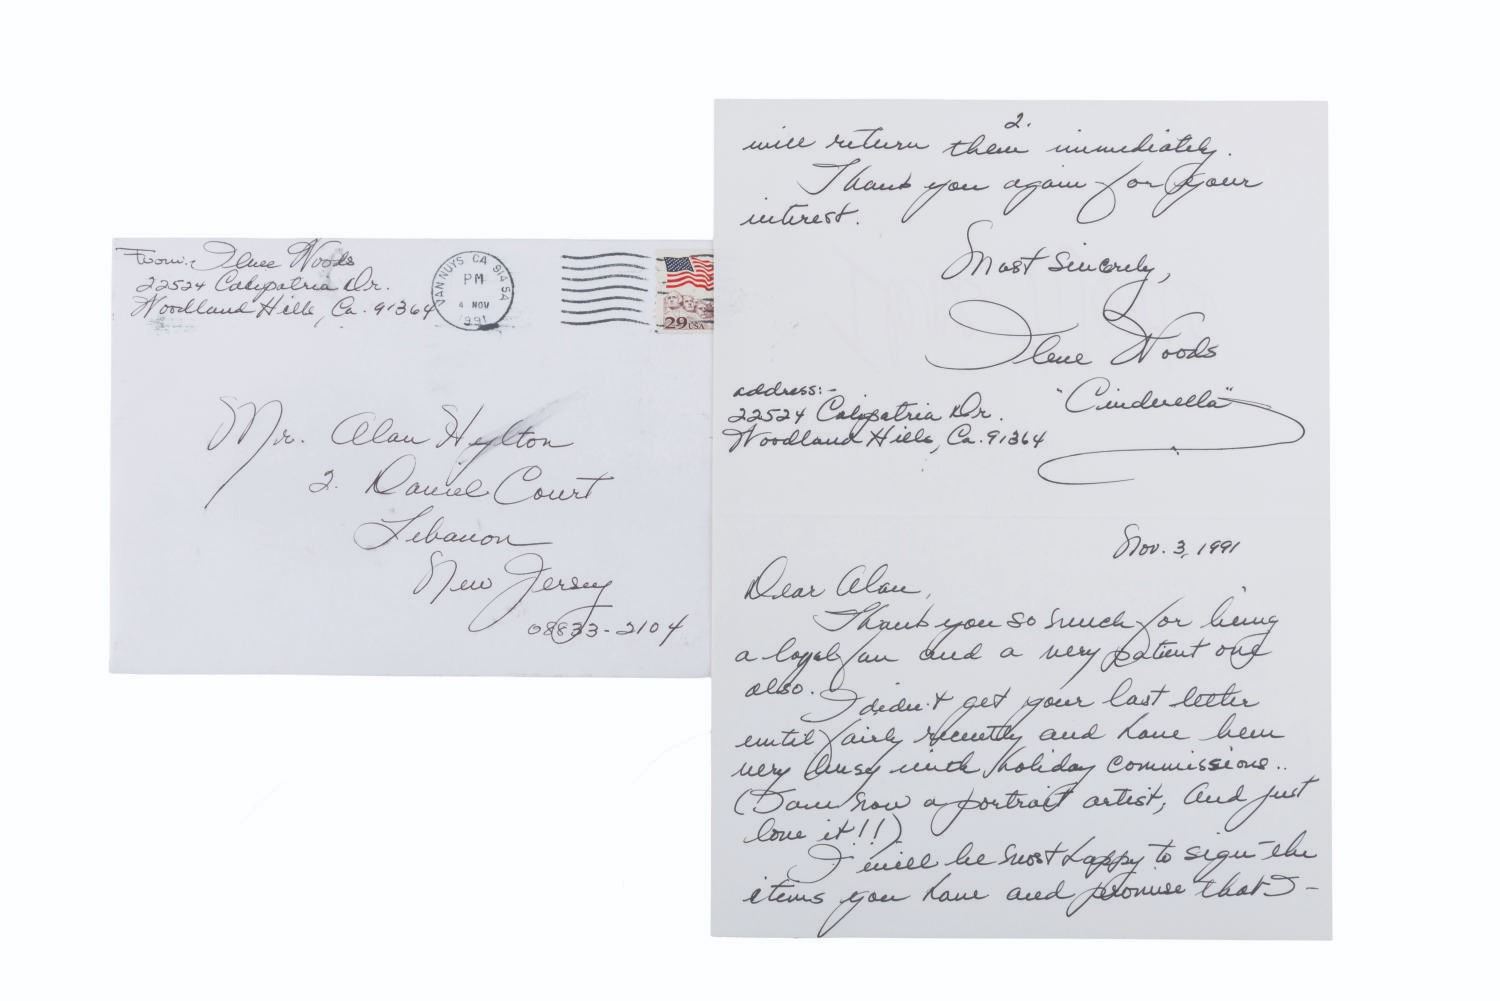 From:- Ilene Woods
22524 Calipatria Dr.
Woodland Hills, Ca. 91364
VAN NUYS CA 914 5A
PM
4 NOV
1991
29 USA
Mr. Alan Hylton
2. Daniel Court
Lebanon
New Jersey
08833-2104
2.
will return them immediately.
Thank you again for your
interest.
Most Sincerely,
Ilene Woods
"Cinderella"
address:-
22524 Calipatria Dr.
Woodland Hills, Ca. 91364
Nov. 3, 1991
Dear Alan,
Thank you so much for being
a loyal fan and a very patient one
also.
I didn't get your last letter
until fairly recently and have been
very busy with holiday commissions..
(I am now a portrait artist, and just
love it!!)
I will be most happy to sign the
items you have and promise that I -